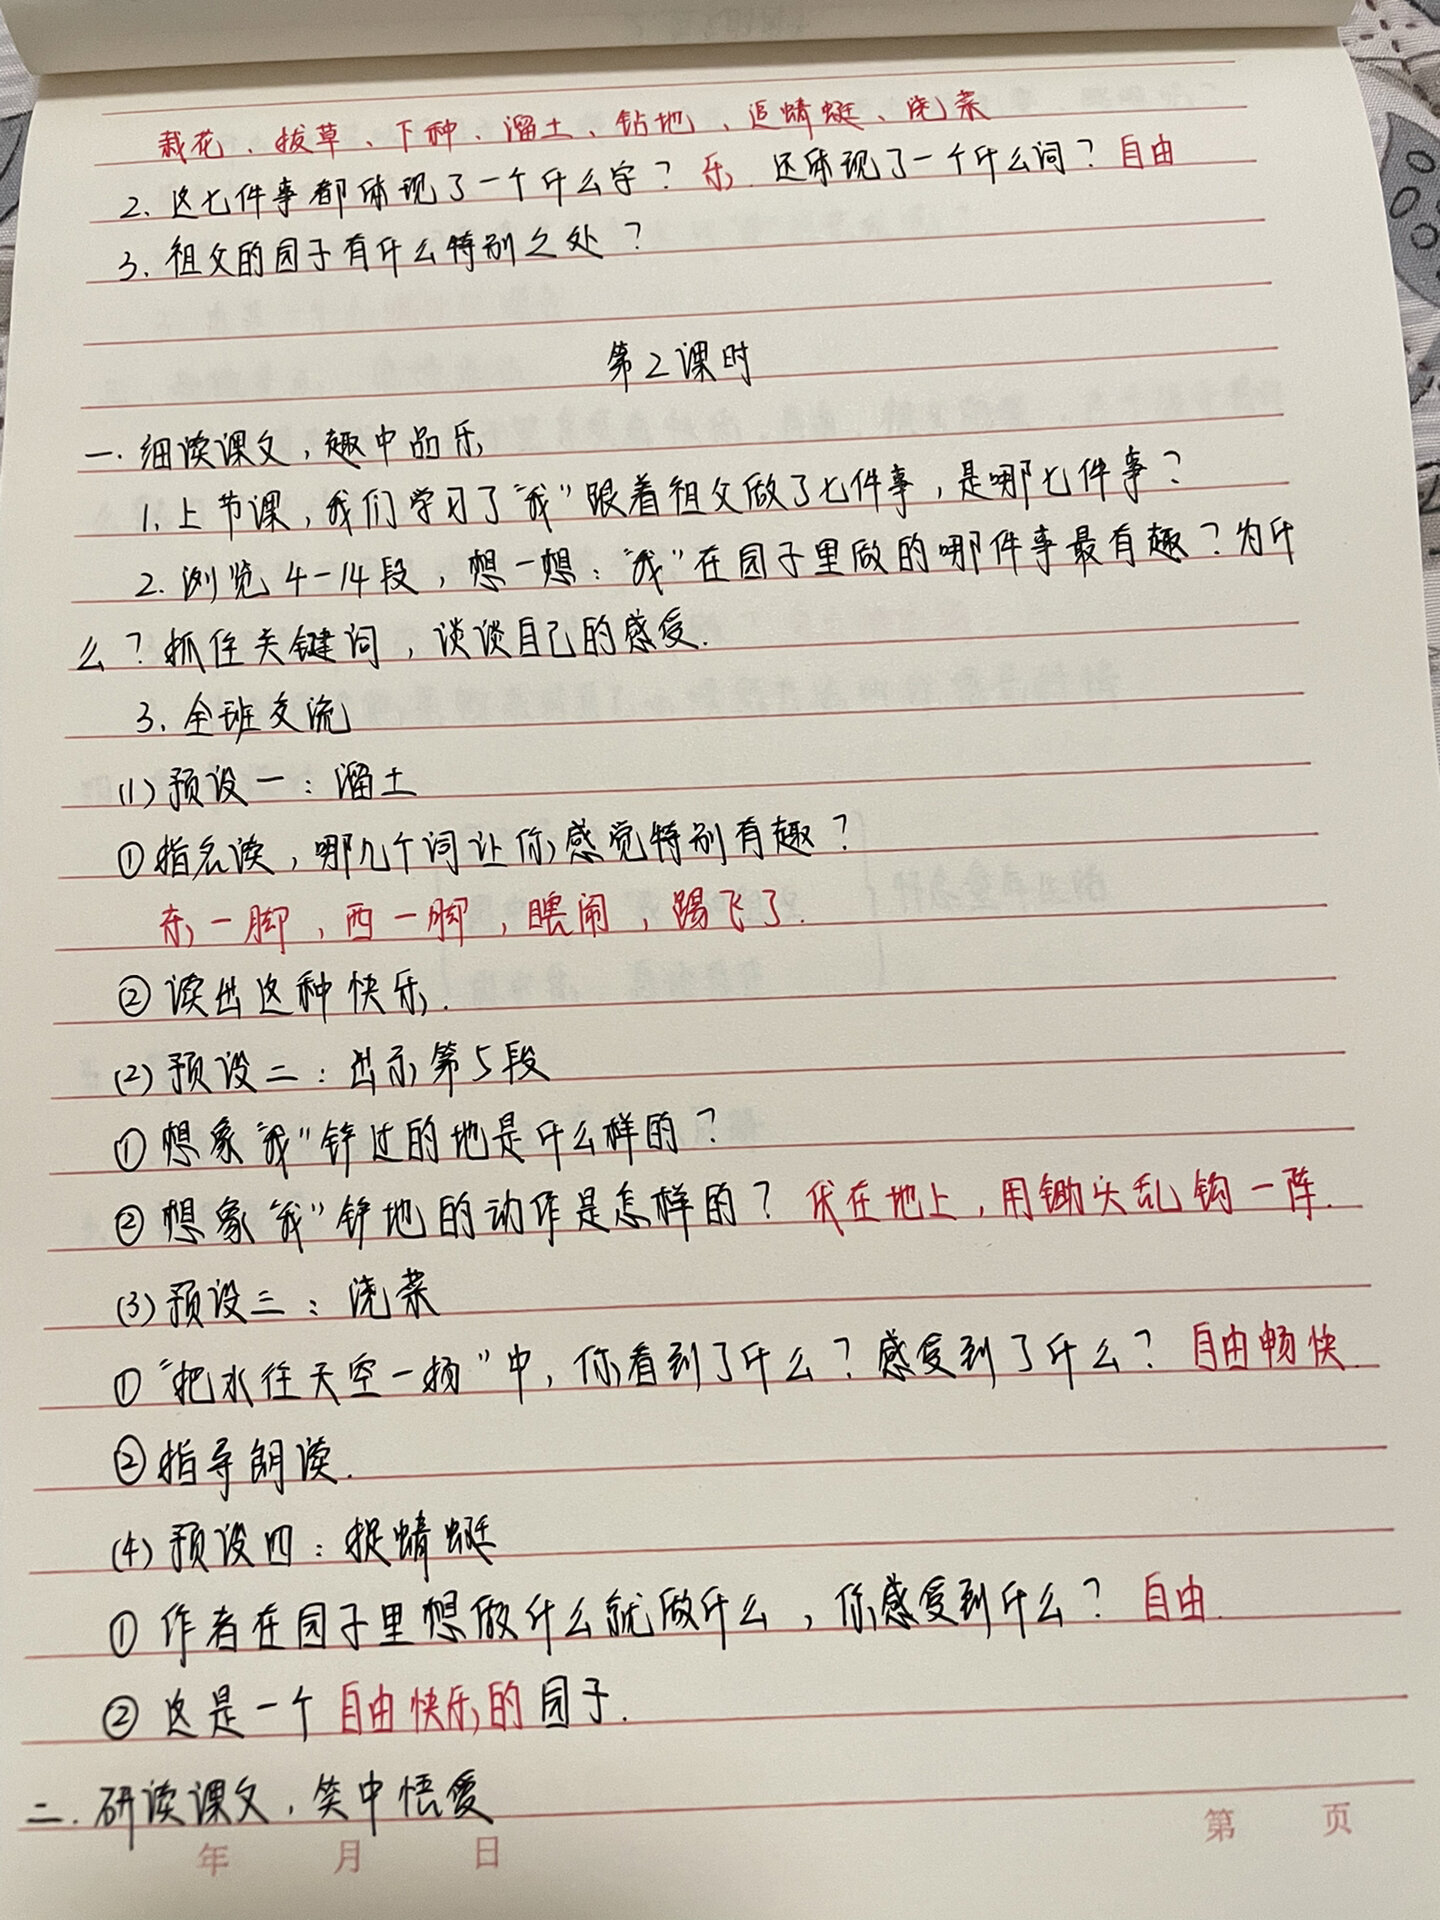 栽花、拔草、下种、溜土、钻地、追蜻蜓、浇菜
2. 这七件事都体现了一个什么字？乐. 还体现了一个什么词？自由
3. 祖父的园子有什么特别之处？
第2课时
一. 细读课文，趣中品乐
1. 上节课，我们学习了“我”跟着祖父做了七件事，是哪七件事？
2. 浏览4-14段，想一想：“我”在园子里做的哪件事最有趣？为什
么？抓住关键词，谈谈自己的感受.
3. 全班交流
(1) 预设一：溜土
①指名读，哪几个词让你感觉特别有趣？
东一脚，西一脚，瞎闹，踢飞了.
②读出这种快乐.
(2) 预设二：出示第5段
①想象“我”铲过的地是什么样的？
②想象“我”铲地的动作是怎样的？伏在地上，用锄头乱钩一阵.
(3) 预设三：浇菜
①“把水往天空一扬”中，你看到了什么？感受到了什么？自由畅快.
②指导朗读.
(4) 预设四：捉蜻蜓
①作者在园子里想做什么就做什么，你感受到什么？自由.
②这是一个自由快乐的园子.
二. 研读课文，笑中悟爱
年 月 日 第 页